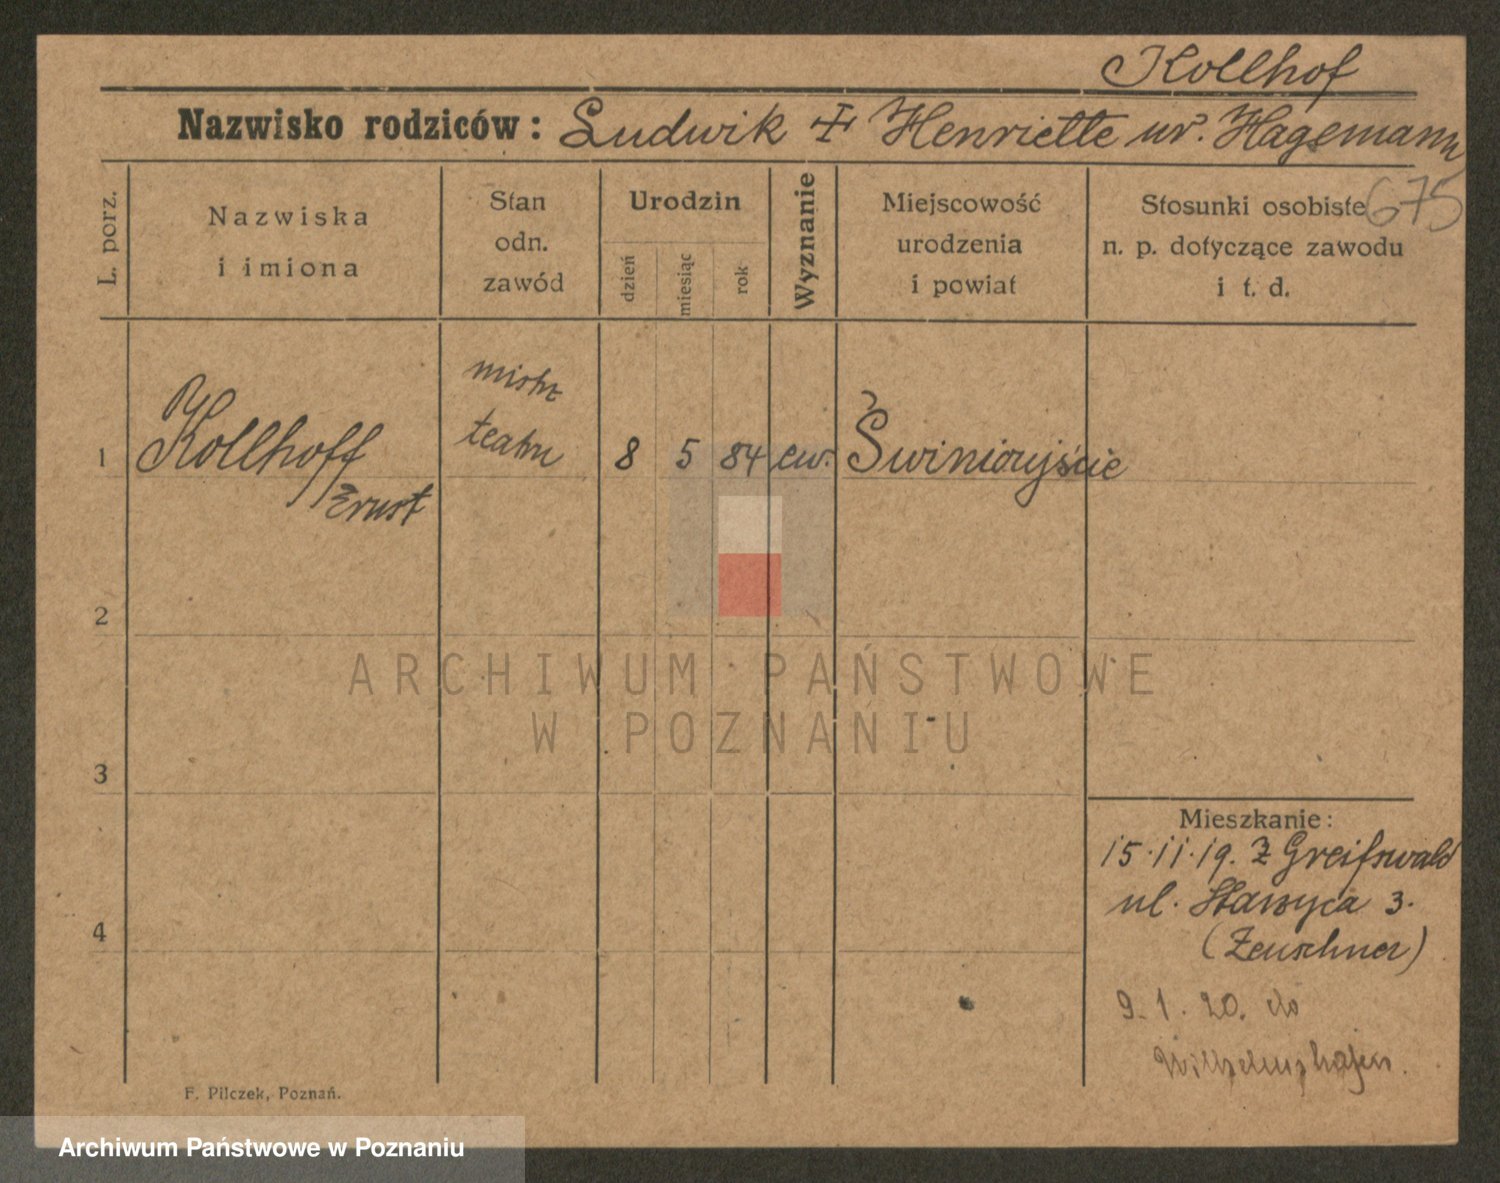 Kollhof
Nazwisko rodziców: Ludwik + Henriette ur. Hagemann
675
L. porz.
Nazwiska
i imiona
Stan
odn.
zawód
Urodzin
dzień
miesiąc
rok
Wyznanie
Miejscowość
urodzenia
i powiat
Stosunki osobiste
n. p. dotyczące zawodu
i t. d.
1
Kollhoff
Ernst
mistrz
teatru
8 5 84 ew.
Świnioujście
2
3
4
Mieszkanie:
15.11.19. z Greifswald
ul. 3.
(Zeuschner)
9.1.20. do
Wilhelmshafen.
F. Pilczek, Poznań.
ARCHIWUM PAŃSTWOWE
W POZNANIU
Archiwum Państwowe w Poznaniu